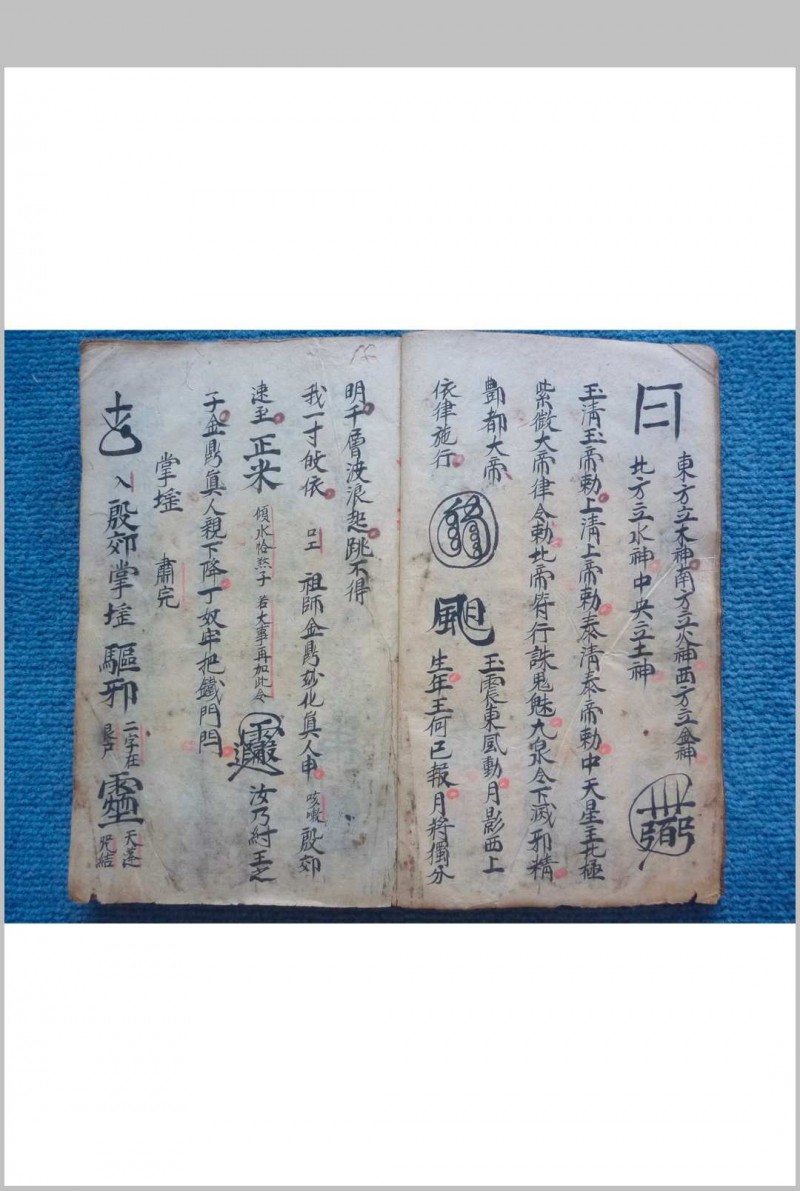 東方立木神南方立火神西方立金神
北方立水神中央立土神
玉清玉帝勅上清上帝勅泰清泰帝勅中天星主北極
紫微大帝律令勅北帝符行誅鬼魅九泉令下滅邪精
酆都大帝
玉震東風動月影西上
依律施行
生年王何已報月將獨分
明千層波浪起跳不得
我一寸皈依
祖師金鼎妙化真人申
咳嗽
殷郊
速至
正米
傾水恰熬子
若大事再加此令
汝乃紂王之
子金鼎真人親下降丁奴牢把鐵門閂
掌堖
肅完
入殷郊掌堖
驅邪
二字在
靈
天蓬
咒結